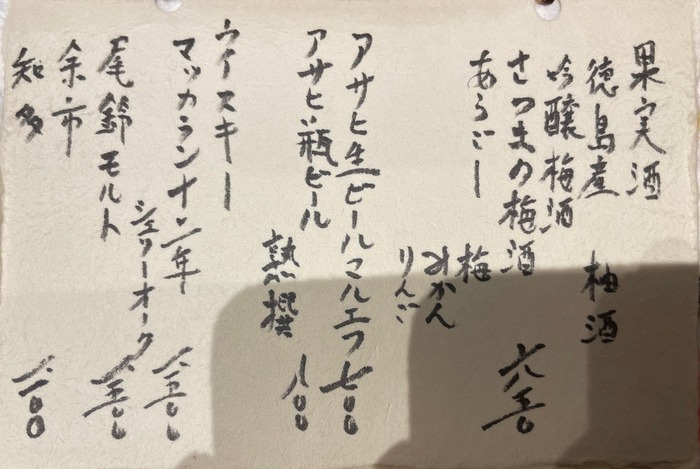 果実酒
徳島産 柚酒
吟醸梅酒
さつまの梅酒 八五〇
あらごし 梅
みかん
りんご
アサヒ生ビールマルエフ 七〇〇
アサヒ瓶ビール 八〇〇
熟撰
ウイスキー
マッカラン十二年
シェリーオーク
尾鈴モルト
余市
知多